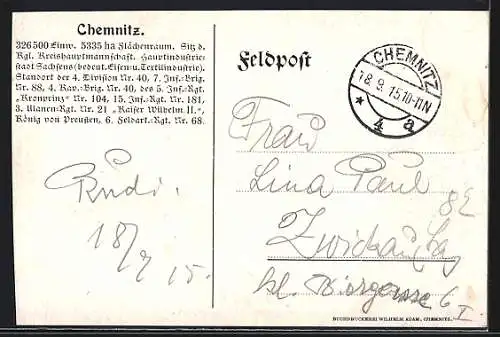 Chemnitz.
326500 Einw. 5335 ha Flächenraum. Sitz d.
Kgl. Kreishauptmannschaft. Hauptindustrie-
stadt Sachsens (bedeut. Eisen- u. Textilindustrie).
Standort der 4. Division Nr. 40, 7. Inf.-Brig.
Nr. 88, 4. Kav.-Brig. Nr. 40, des 5. Inf.-Rgt.
„Kronprinz" Nr. 104, 15. Inf.-Rgt. Nr. 181,
3. Ulanen-Rgt. Nr. 21 „Kaiser Wilhelm II.",
König von Preußen, 6. Feldart.-Rgt. Nr. 68.
Rudi.
18/9 15.
Feldpost
CHEMNITZ
18.9.15.10-11N
* 4 a
Frau
Lina Paul
Zwickau
kl. 6 I
BUCHDRUCKEREI WILHELM ADAM, CHEMNITZ.